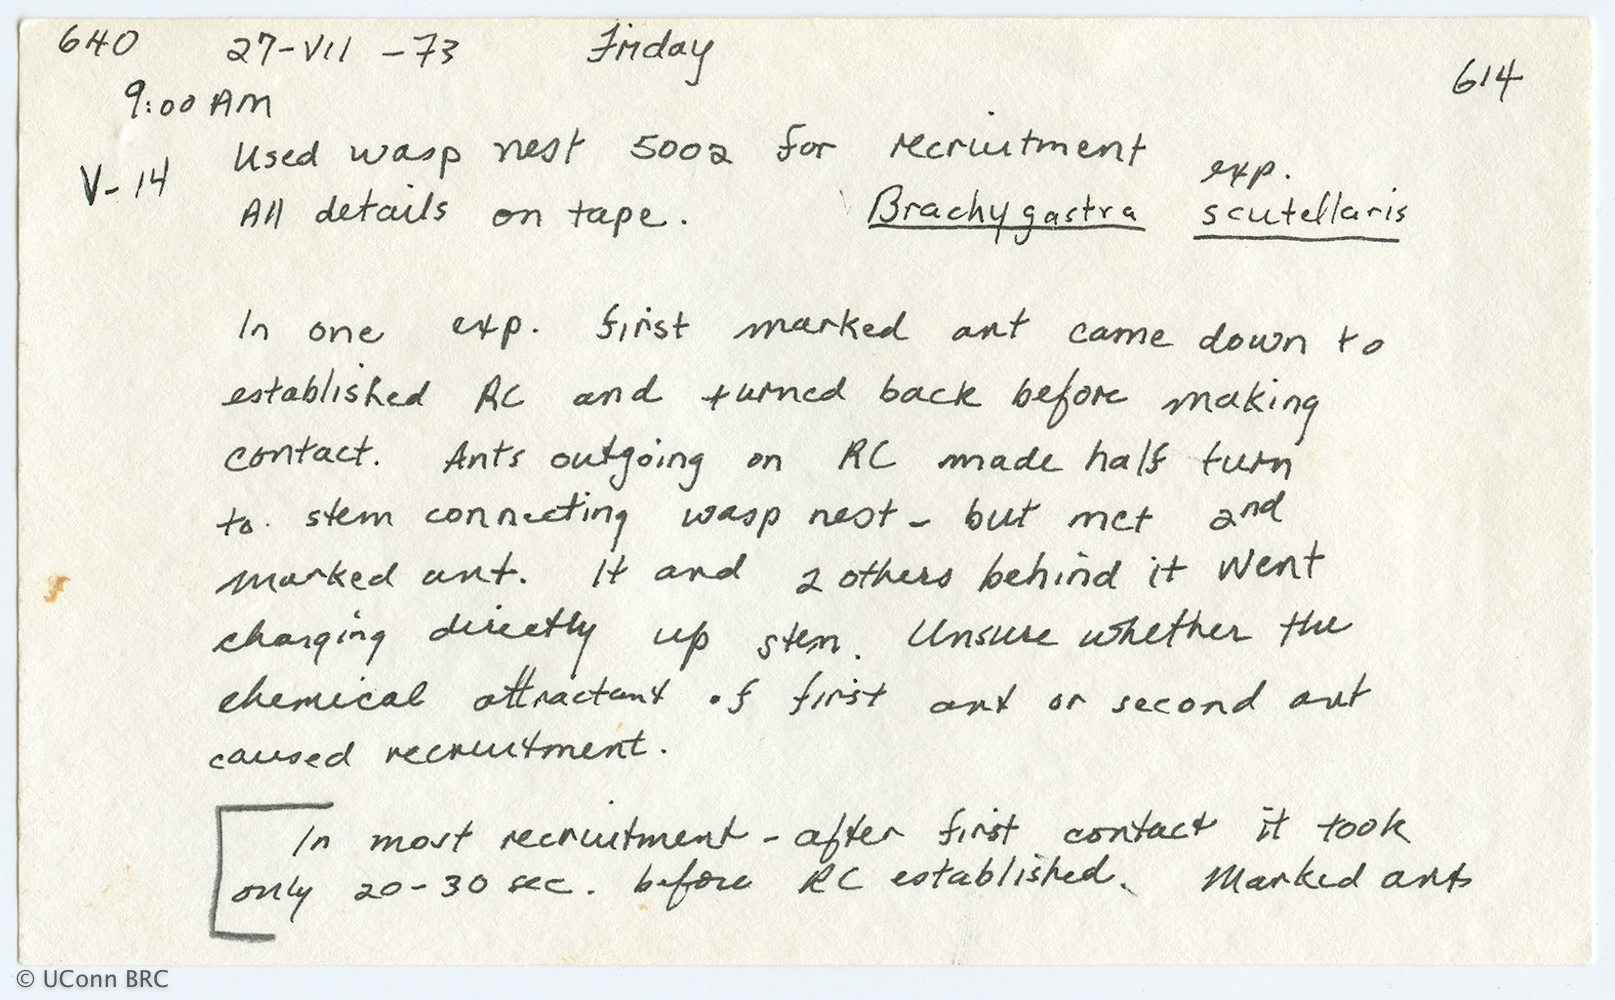 640 27-VII-73 Friday
614
9:00 AM
V-14 Used wasp nest 5002 for recruitment exp.
All details on tape. Brachygastra scutellaris
In one exp. first marked ant came down to
established RC and turned back before making
contact. Ants outgoing on RC made half turn
to stem connecting wasp nest - but met 2nd
marked ant. It and 2 others behind it went
charging directly up stem. Unsure whether the
chemical attractant of first ant or second ant
caused recruitment.
In most recruitment - after first contact it took
only 20-30 sec. before RC established. Marked ants
© UConn BRC